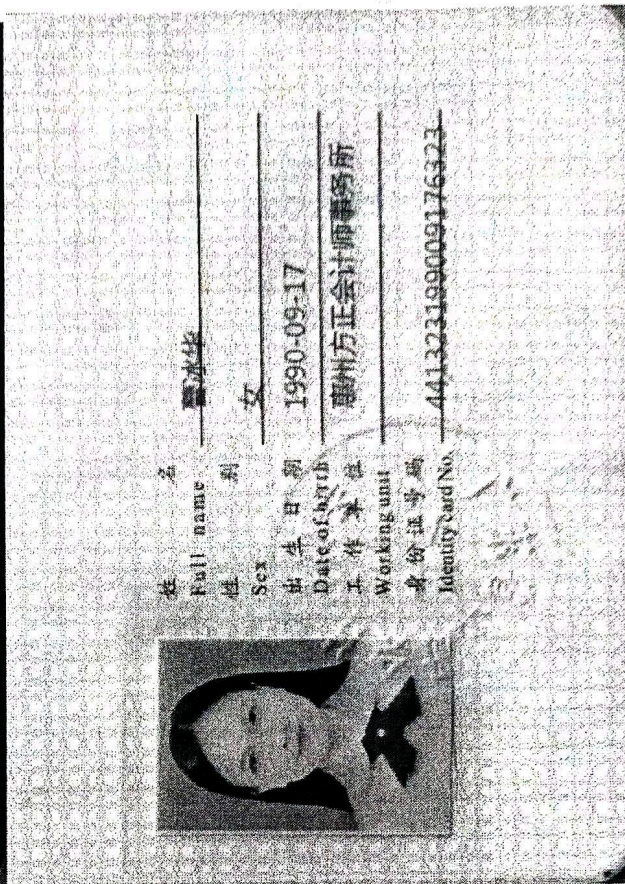 姓 名
Full name 冰华
性 别
Sex 女
出 生 日 期
Date of birth 1990-09-17
工 作 单 位
Working unit 惠州方正会计师事务所
身 份 证 号 码
Identity card No. 441323199009176323